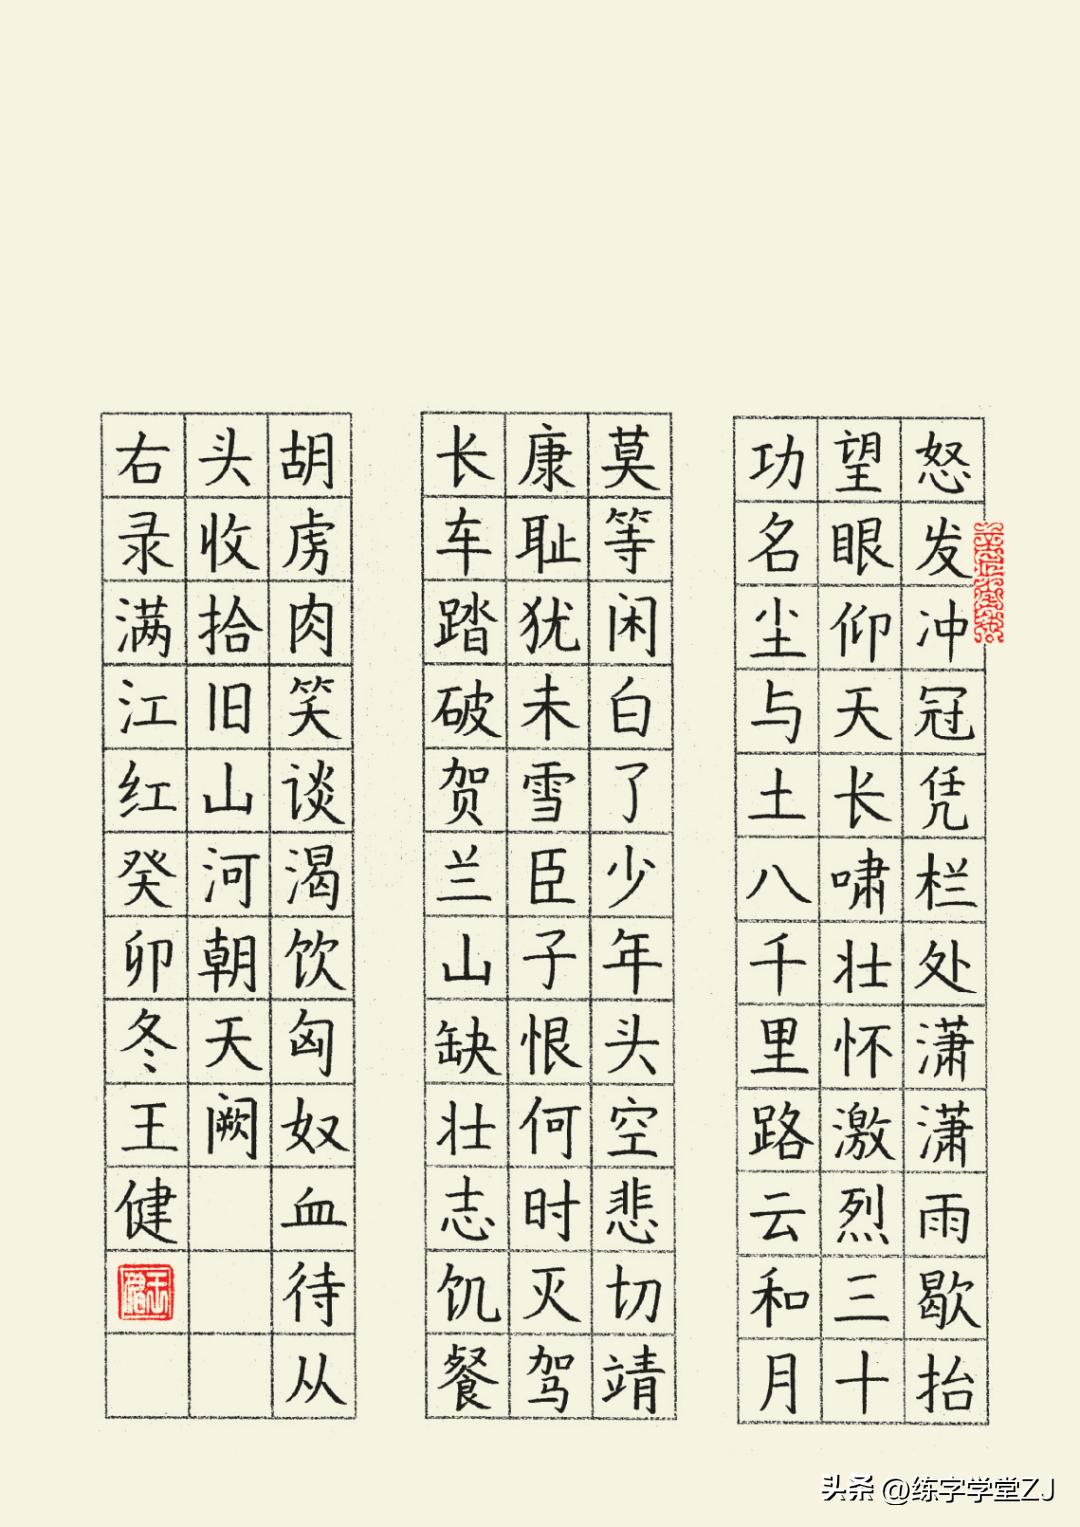 怒发冲冠凭栏处潇潇雨歇抬
望眼仰天长啸壮怀激烈三十
功名尘与土八千里路云和月
莫等闲白了少年头空悲切靖
康耻犹未雪臣子恨何时灭驾
长车踏破贺兰山缺壮志饥餐
胡虏肉笑谈渴饮匈奴血待从
头收拾旧山河朝天阙
右录满江红癸卯冬王健
头条 @练字学堂ZJ